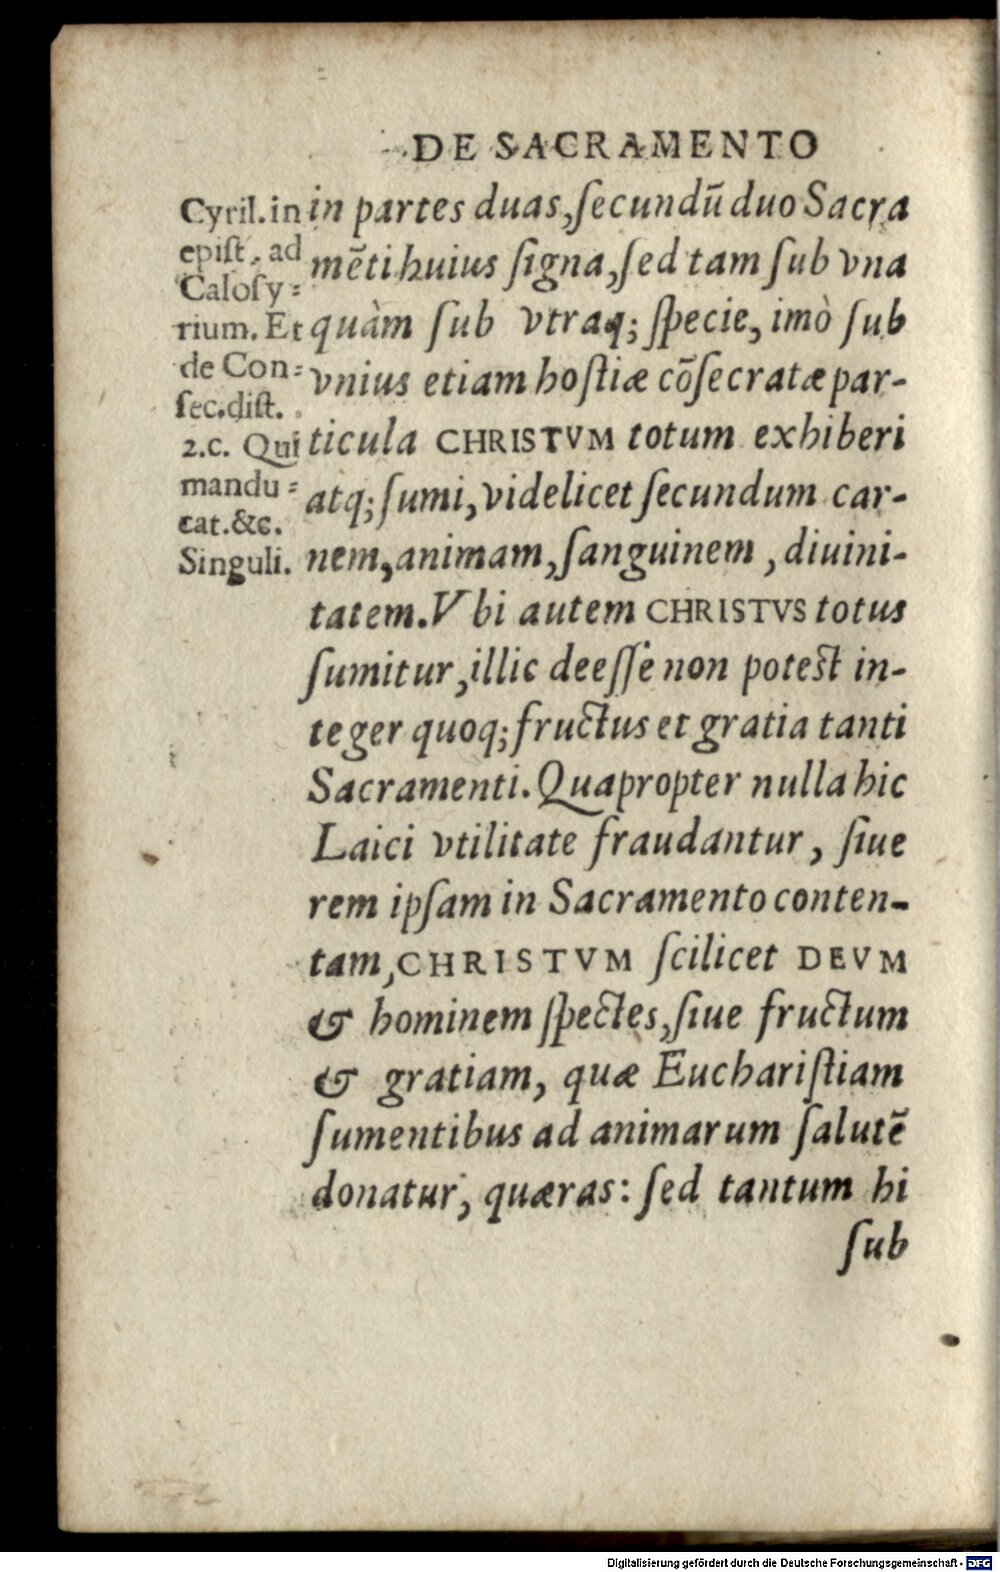 DE SACRAMENTO
Cyril. in
epiſt. ad
Caloſy⸗
rium. Et
de Con⸗
ſec. diſt.
2. c. Qui
mandu⸗
cat. &c.
Singuli.
in partes duas, ſecundū duo Sacra
mēti huius ſigna, ſed tam ſub vna
quàm ſub vtraq; ſpecie, imò ſub
vnius etiam hoſtiæ cōſecratæ par-
ticula CHRISTVM totum exhiberi
atq; ſumi, videlicet ſecundum car-
nem, animam, ſanguinem, diuini-
tatem. Vbi autem CHRISTVS totus
ſumitur, illic deeſſe non poteſt in-
teger quoq; fructus et gratia tanti
Sacramenti. Quapropter nulla hic
Laici vtilitate fraudantur, ſiue
rem ipſam in Sacramento conten-
tam, CHRISTVM ſcilicet DEVM
& hominem ſpectes, ſiue fructum
& gratiam, quæ Euchariſtiam
ſumentibus ad animarum ſalutē
donatur, quæras: ſed tantum hi
ſub
Digitalisierung gefördert durch die Deutsche Forschungsgemeinschaft - DFG